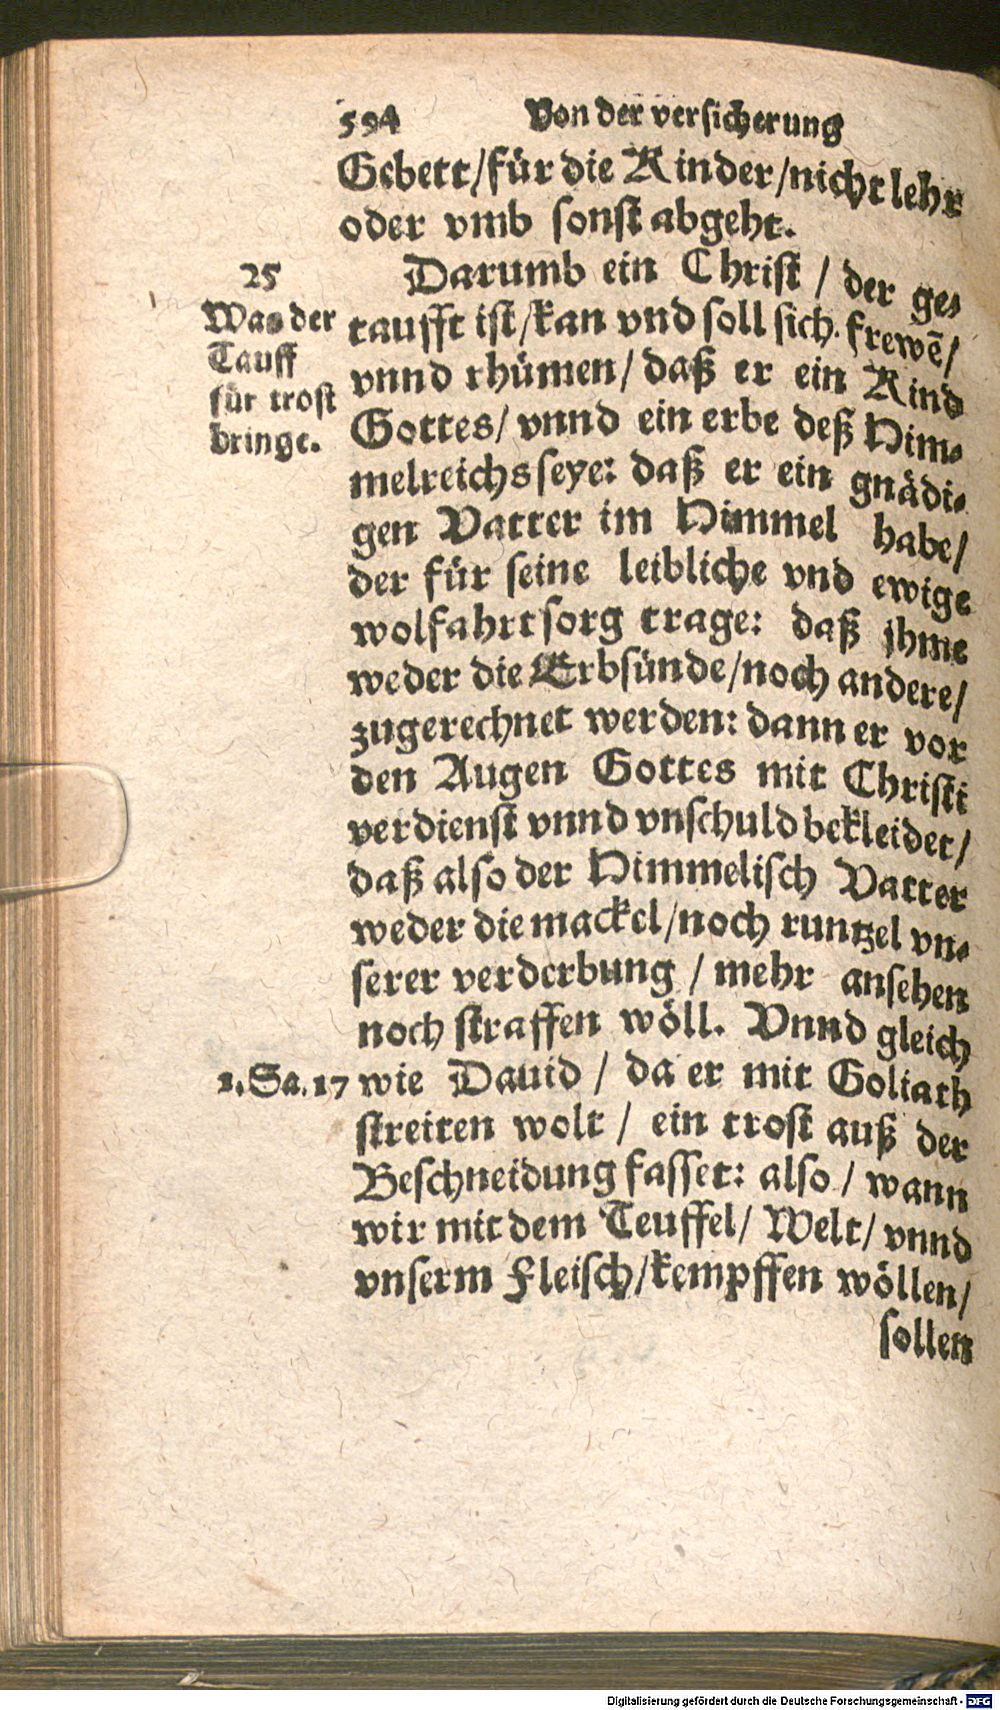 594 Von der versicherung
Gebett/für die Kinder/nicht lehr
oder vmb sonst abgeht.
25
Was der
Tauff
für trost
bringe.
Darumb ein Christ / der ge-
taufft ist/kan vnd soll sich frewẽ/
vnnd rhümen/ daß er ein Kind
Gottes/ vnnd ein erbe deß Him-
melreichs seye: daß er ein gnädi-
gen Vatter im Himmel habe/
der für seine leibliche vnd ewige
wolfahrt sorg trage: daß jhme
weder die Erbsünde/noch andere/
zugerechnet werden: dann er vor
den Augen Gottes mit Christi
verdienst vnnd vnschuld bekleidet/
daß also der Himmelisch Vatter
weder die mackel/noch runtzel vn-
serer verderbung / mehr ansehen
noch straffen wöll. Vnnd gleich
1. Sa. 17
wie Dauid / da er mit Goliath
streiten wolt / ein trost auß der
Beschneidung fasset: also / wann
wir mit dem Teuffel/ Welt/ vnnd
vnserm Fleisch/kempffen wöllen/
sollen
Digitalisierung gefördert durch die Deutsche Forschungsgemeinschaft - DFG